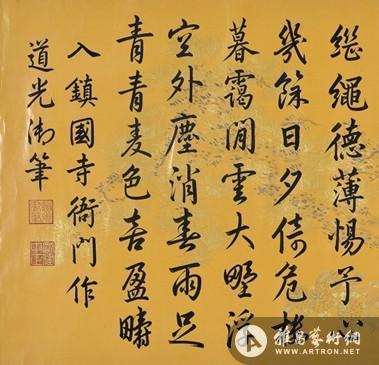 繼繩德薄惕予
幾餘日夕倚危樓
暮靄閒雲大墅浮
空外塵消春雨足
青青麦色喜盈疇
入鎮國寺衙門作
道光御筆
雅昌藝術網
WWW.ARTRON.NET